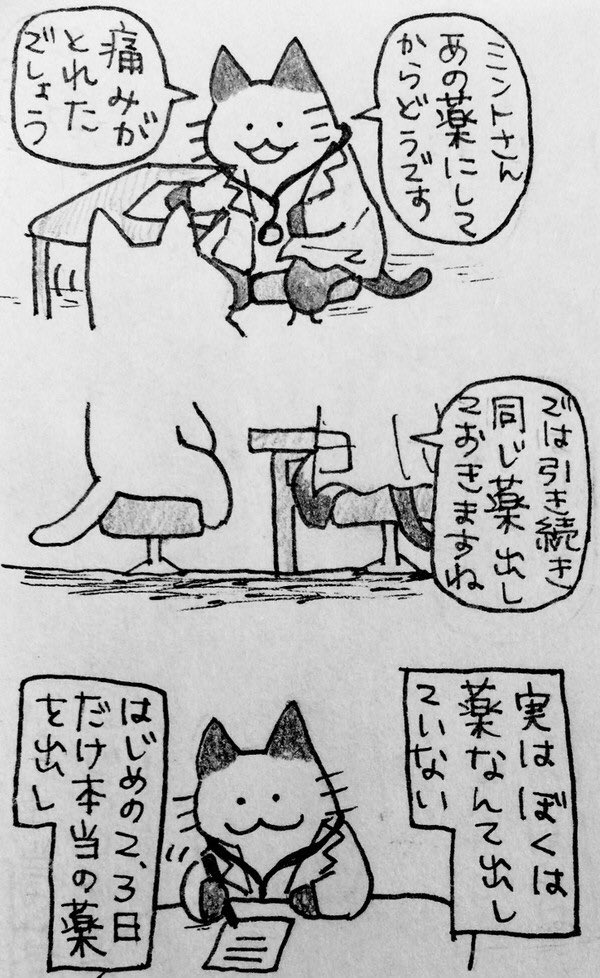 ミントさん
あの薬にして
からどうです
痛みが
とれた
でしょう
では引き続き
同じ薬出し
ておきますね
実はぼくは
薬なんて出し
ていない
はじめの2、3日
だけ本当の薬
を出し